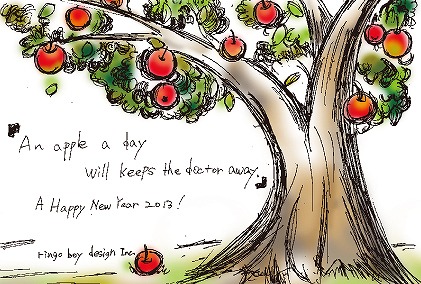 『An apple a day
will keeps the doctor away.』
A Happy New Year 2013!
ringo boy design Inc.